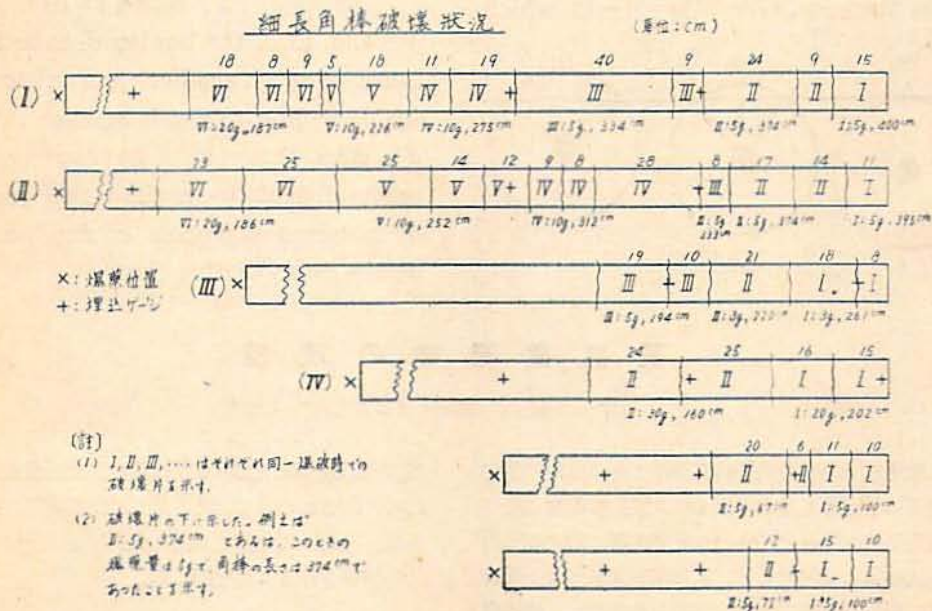 細長角棒破壊狀況
(單位:cm)
18 8 9 5 18 11 19 40 9 24 9 15
(I) × + VI VI VI V V IV IV + III III + II II I
VI:20g, 187cm V:10g, 226cm IV:10g, 275cm III:5g, 334cm II:5g, 374cm I:5g, 400cm
23 25 25 14 12 9 8 28 8 17 14 11
(II) × + VI VI V V V+ IV IV IV + III II II I
VI:20g, 186cm V:10g, 252cm IV:10g, 312cm III:5g 333cm II:5g, 374cm I:5g, 395cm
19 10 21 18 8
(III) × III + III II I + I
III:5g, 194cm II:3g, I:3g, 261cm
×:爆藥位置
+:埋込ゲージ
24 25 16 15
(IV) × + II + II I I +
II:30g, 160cm I:20g, 202cm
20 6 11 10
× + + II + II I I
II:5g, 67cm I:5g, 100cm
12 15 10
× + + II I I
II:5g, I:5g, 100cm
(註)
(1) I, II, III, ‥‥はそれぞれ同一爆破時での
破壊片を示す.
(2) 破壊片の下に示した. 例えば
II:5g, 374cm とあるは、このときの
爆藥量は5gで、角棒の長さは374cmで
あったことを示す.